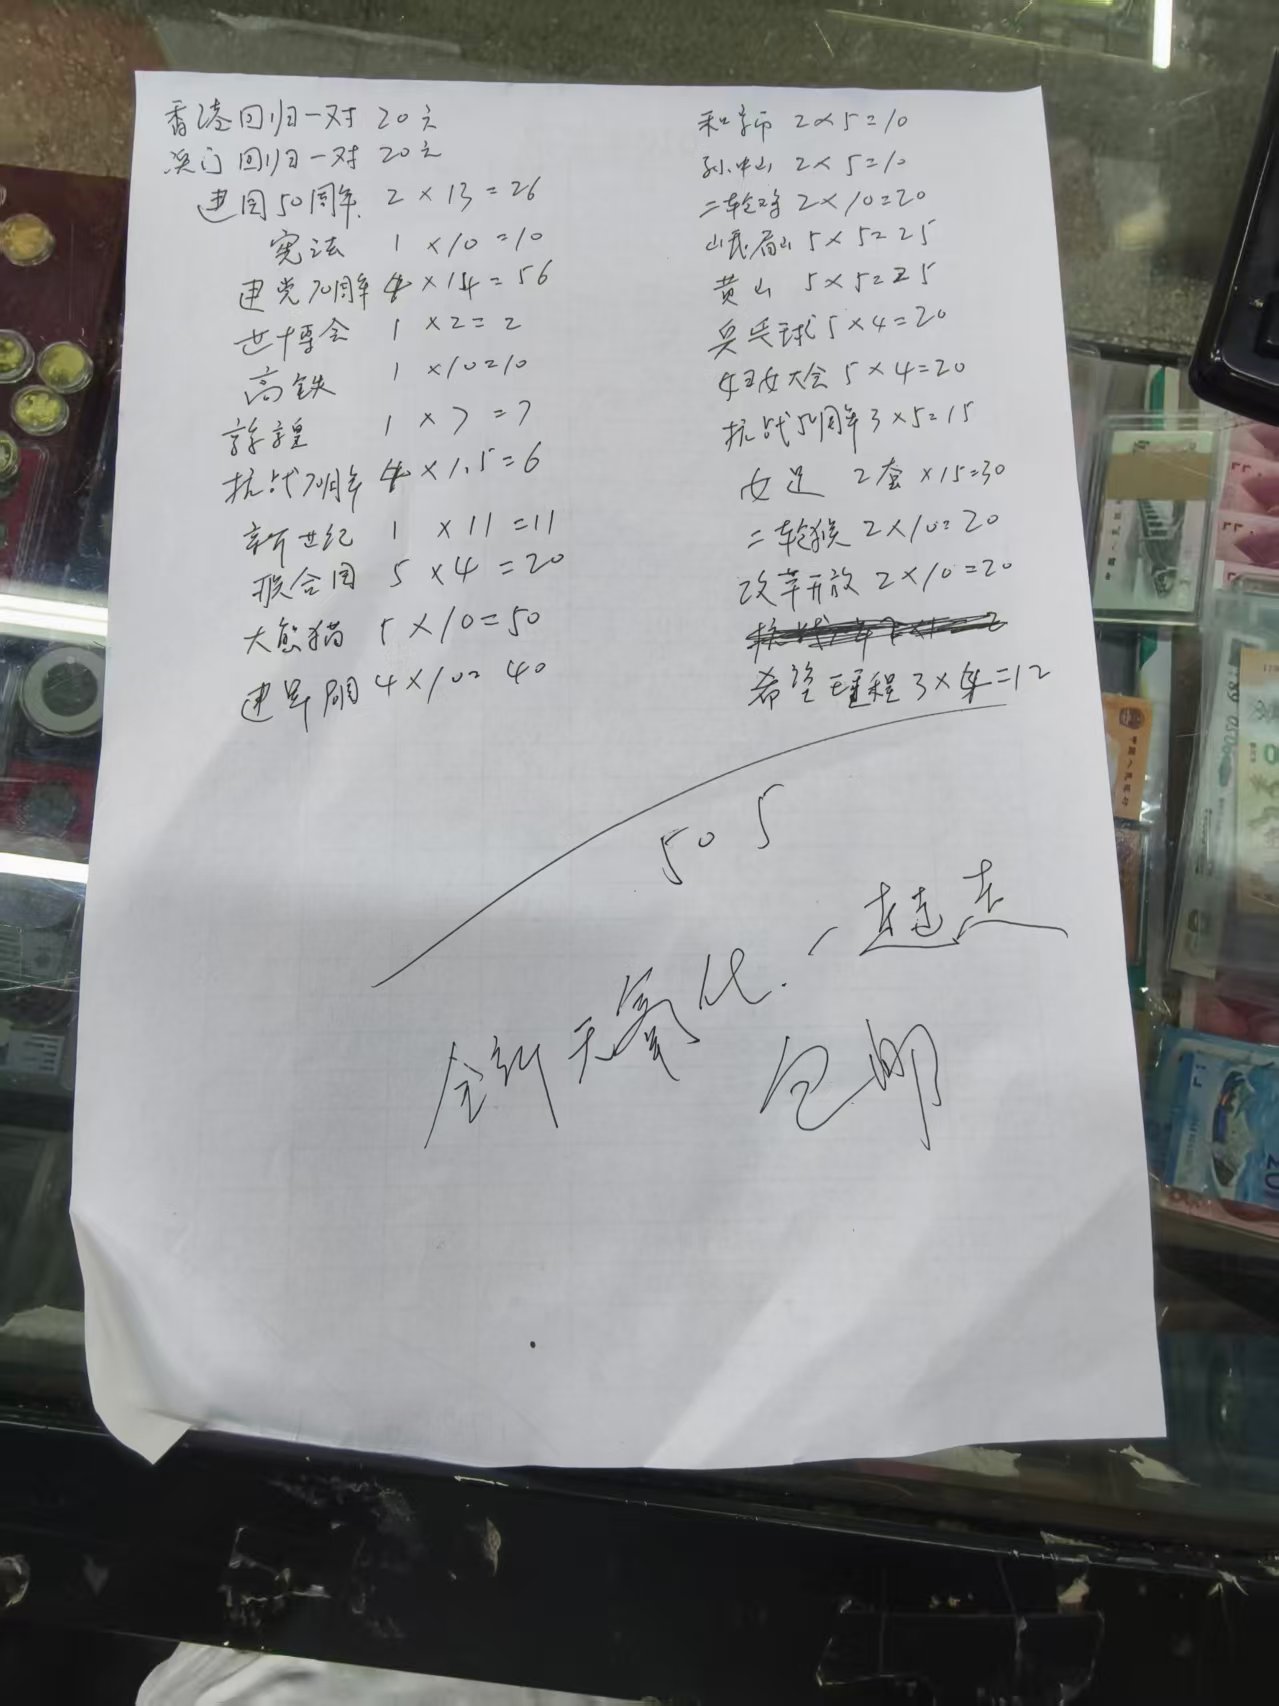 香港回归一对 20元
澳门回归一对 20元
建国50周年 2×13=26
宪法 1×10=10
建党70周年 4×14=56
世博会 1×2=2
高铁 1×10=10
敦煌 1×7=7
抗战70周年 4×1.5=6
新世纪 1×11=11
联合国 5×4=20
大熊猫 5×10=50
建军 4×10=40
和字币 2×5=10
孙中山 2×5=10
二轮鸡 2×10=20
5×5=25
黄山 5×5=25
乒乓球 5×4=20
妇女大会 5×4=20
抗战50周年 3×5=15
女足 2套×15=30
二轮猴 2×10=20
改革开放 2×10=20
希望工程 3×4=12
505
全新无氧化.一起走
包邮